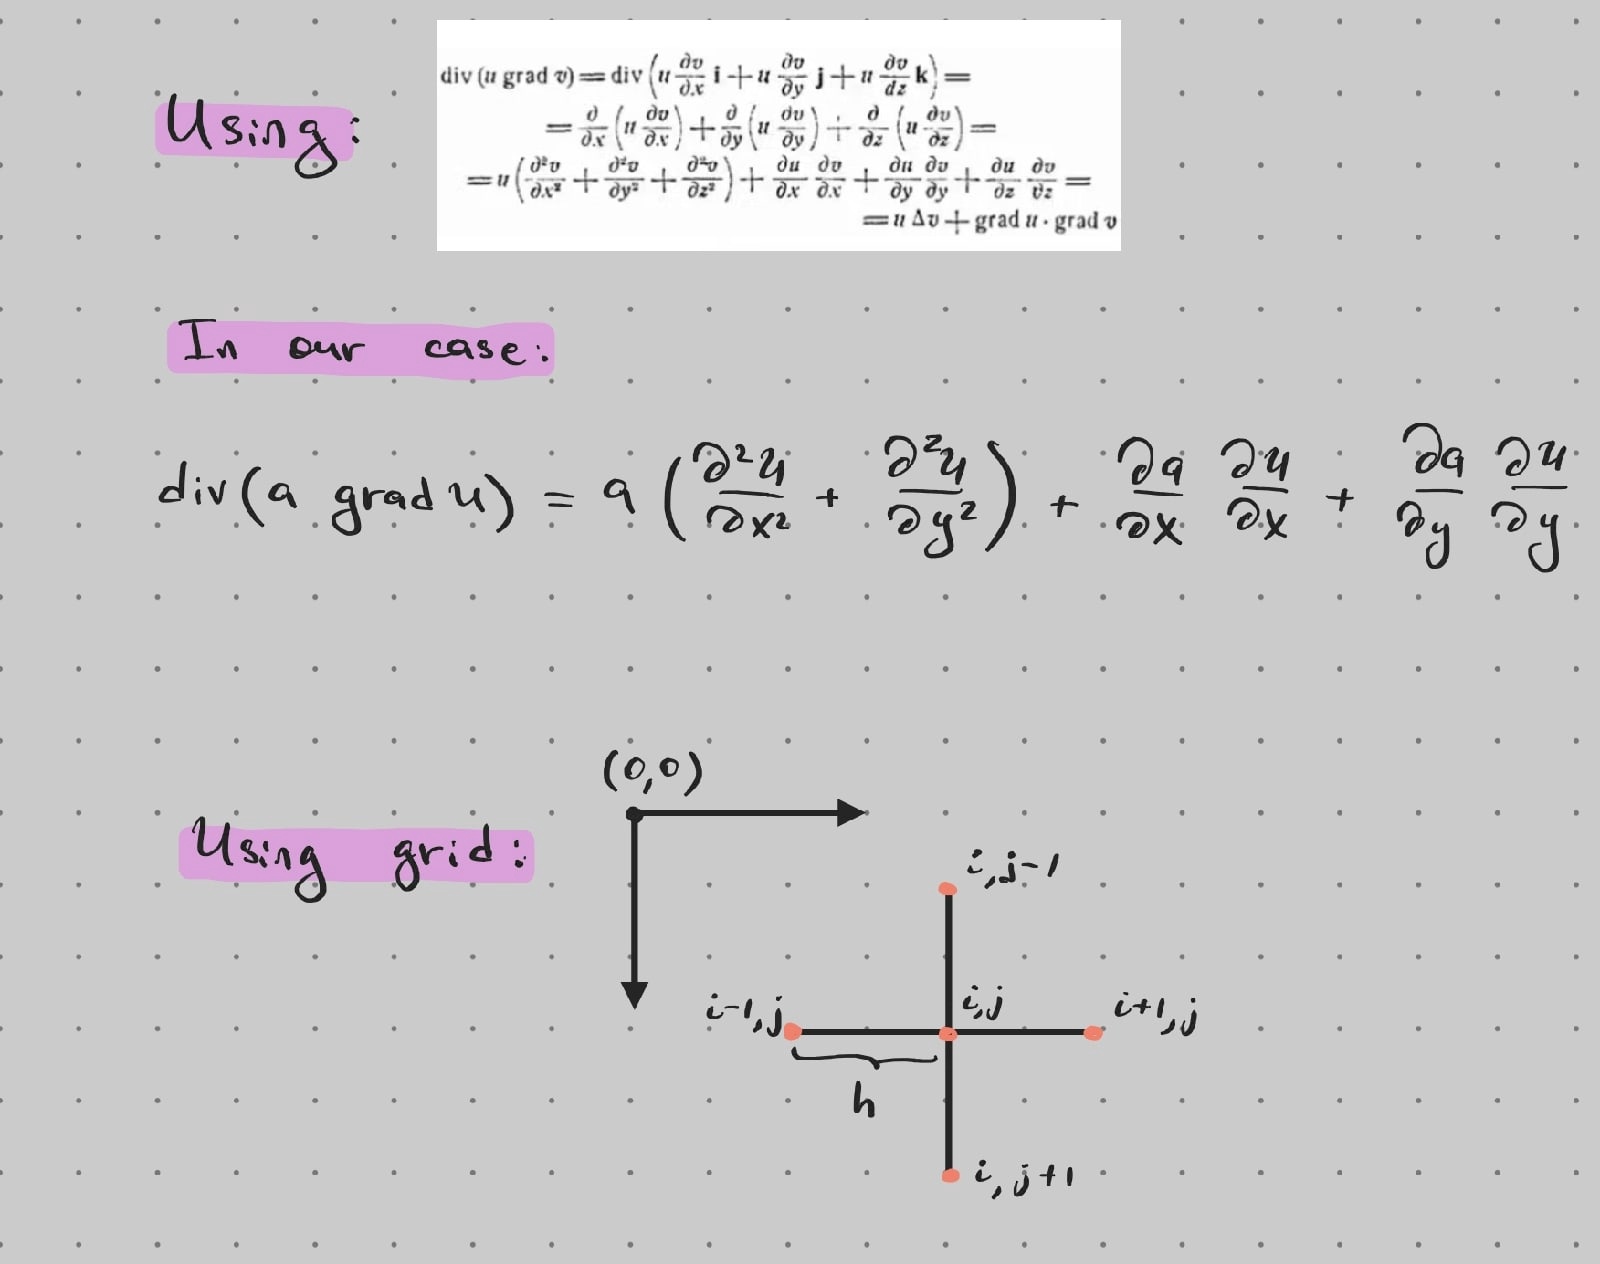 Using:
div (u grad v) = div (u ∂v/∂x i + u ∂v/∂y j + u ∂v/dz k) =
= ∂/∂x (u ∂v/∂x) + ∂/∂y (u ∂v/∂y) + ∂/∂z (u ∂v/∂z) =
= u (∂²v/∂x² + ∂²v/∂y² + ∂²v/∂z²) + ∂u/∂x ∂v/∂x + ∂u/∂y ∂v/∂y + ∂u/∂z ∂v/∂z =
= u Δv + grad u · grad v
In our case:
div(a grad u) = a (∂²u/∂x² + ∂²u/∂y²) + ∂a/∂x ∂u/∂x + ∂a/∂y ∂u/∂y
(0,0)
Using grid:
i,j-1
i-1,j
i,j
i+1,j
h
i,j+1